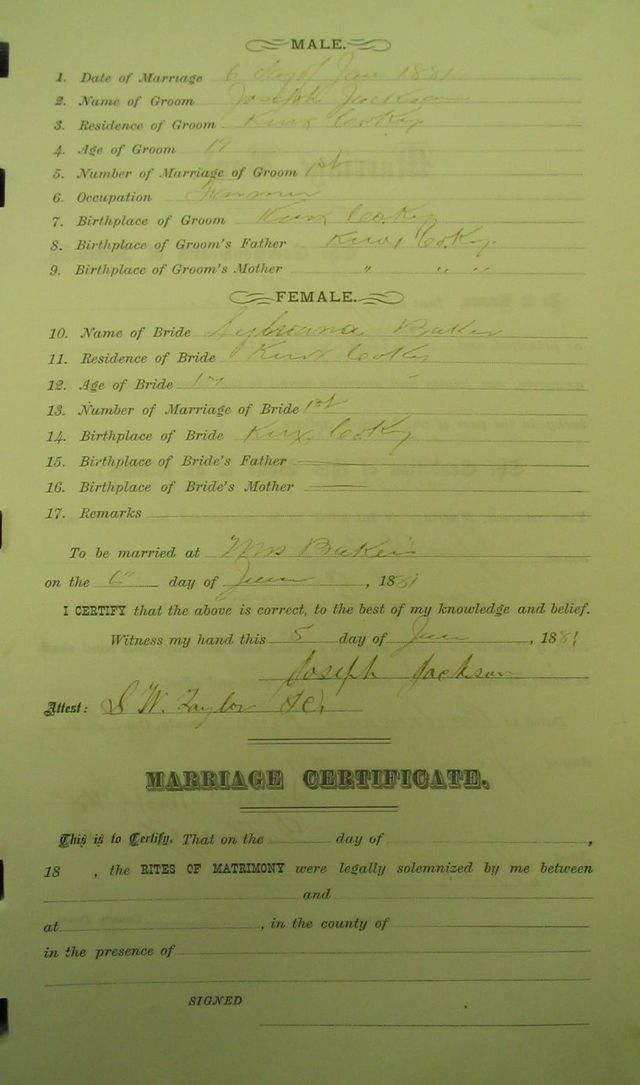 MALE.
1. Date of Marriage 6 day of Jan 1881
2. Name of Groom Joseph Jackson
3. Residence of Groom Knox Co Ky
4. Age of Groom 19
5. Number of Marriage of Groom 1st
6. Occupation Farmer
7. Birthplace of Groom Knox Co Ky
8. Birthplace of Groom's Father Knox Co Ky
9. Birthplace of Groom's Mother " " "
FEMALE.
10. Name of Bride Baker
11. Residence of Bride Knox Co Ky
12. Age of Bride 17
13. Number of Marriage of Bride 1st
14. Birthplace of Bride Knox Co Ky
15. Birthplace of Bride's Father
16. Birthplace of Bride's Mother
17. Remarks
To be married at Mrs Bakers
on the 6" day of Jan, 1881
I CERTIFY that the above is correct, to the best of my knowledge and belief.
Witness my hand this 5 day of Jan, 1881
Joseph Jackson
Attest: S W. Taylor
MARRIAGE CERTIFICATE.
This is to Certify, That on the day of ,
18 , the RITES OF MATRIMONY were legally solemnized by me between
and
at , in the county of
in the presence of
SIGNED